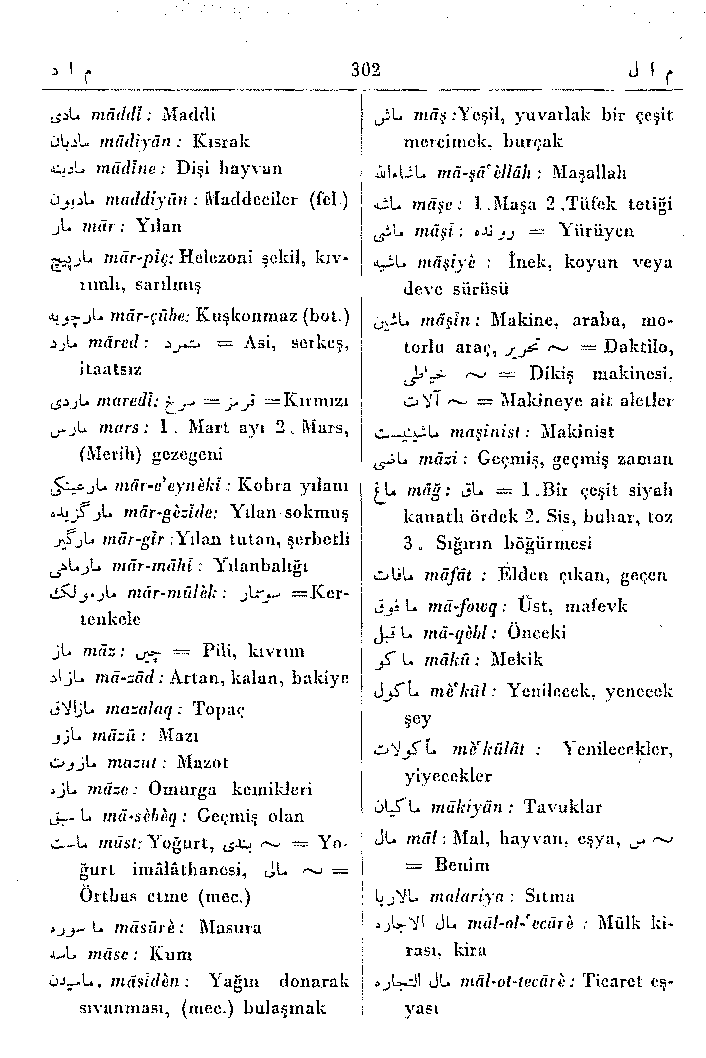 م ا د 302 م ا ل
مادی māddî : Maddi
مادیان mādiyān : Kısrak
مادینه mādîne : Dişi hayvan
مادیون maddiyûn : Maddeciler (fel.)
مار mār : Yılan
مارپیچ mār-pîç: Helezoni şekil, kıv-
rımlı, sarılmış
مارچوبه mār-çûbe: Kuşkonmaz (bot.)
مارد māred : متمرد = Asi, serkeş,
itaatsız
ماردی maredî: سرخ = قرمز =Kırmızı
مارس mars : 1. Mart ayı 2. Mars,
(Merih) gezegeni
مارعینکی mār-e'eynèkî : Kobra yılanı
مارگزیده mār-gèzîde: Yılan sokmuş
مارگیر mār-gîr :Yılan tutan, şerbetli
مارماهی mār-māhî : Yılanbalığı
مارمولک mār-mûlèk : سوسمار =Ker-
tenkele
ماز māz : چین = Pili, kıvrım
مازاد mā-zād : Artan, kalan, bakiye
مازالاق mazalaq : Topaç
مازو māzû : Mazı
مازوت mazut : Mazot
مازه māze : Omurga kemikleri
ما سبق mā-sèbèq : Geçmiş olan
ماست māst: Yoğurt, بندی ~ = Yo-
ğurt imâlâthanesi, مالی ~ =
Örtbas etme (mec.)
ماسوره māsûrè : Masura
ماسه māse : Kum
ماسیدن māsîdèn : Yağın donarak
sıvanması, (mec.) bulaşmak
ماش māş :Yeşil, yuvarlak bir çeşit
mercimek, burçak
ماشاءالله mā-şā'èllāh : Maşallah
ماشه māşe : 1.Maşa 2.Tüfek tetiği
ماشی māşî : رونده = Yürüyen
ماشیه māşiyè : İnek, koyun veya
deve sürüsü
ماشین māşîn : Makine, araba, mo-
torlu araç, تحریر ~ = Daktilo,
خیاطی ~ = Dikiş makinesi,
آلات ~ = Makineye ait aletler
ماشینیست maşinist : Makinist
ماضی māzi : Geçmiş, geçmiş zaman
ماغ māğ : ماق = 1.Bir çeşit siyah
kanatlı ördek 2. Sis, buhar, toz
3. Sığırın böğürmesi
مافات māfāt : Elden çıkan, geçen
ما فوق mā-fowq : Üst, mafevk
ما قبل mā-qèbl : Önceki
ماکو mākû : Mekik
مأکول mè'kûl : Yenilecek, yenecek
şey
مأکولات mè'kûlāt : Yenilecekler,
yiyecekler
ماکیان mākiyān : Tavuklar
مال māl : Mal, hayvan, eşya, من ~
= Benim
مالاریا malariya : Sıtma
مال الاجاره māl-ol-'ecārè : Mülk ki-
rası, kira
مال التجاره māl-ot-tecārè : Ticaret eş-
yası